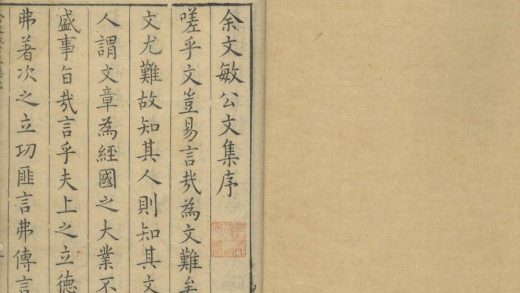 余文敏公文集序
嗟乎文豈易言哉為文難矣
文尤難故知其人則知其文
人謂文章為經國之大業不
盛事旨哉言乎夫上之立德
弗著次之立功匪言弗傳言